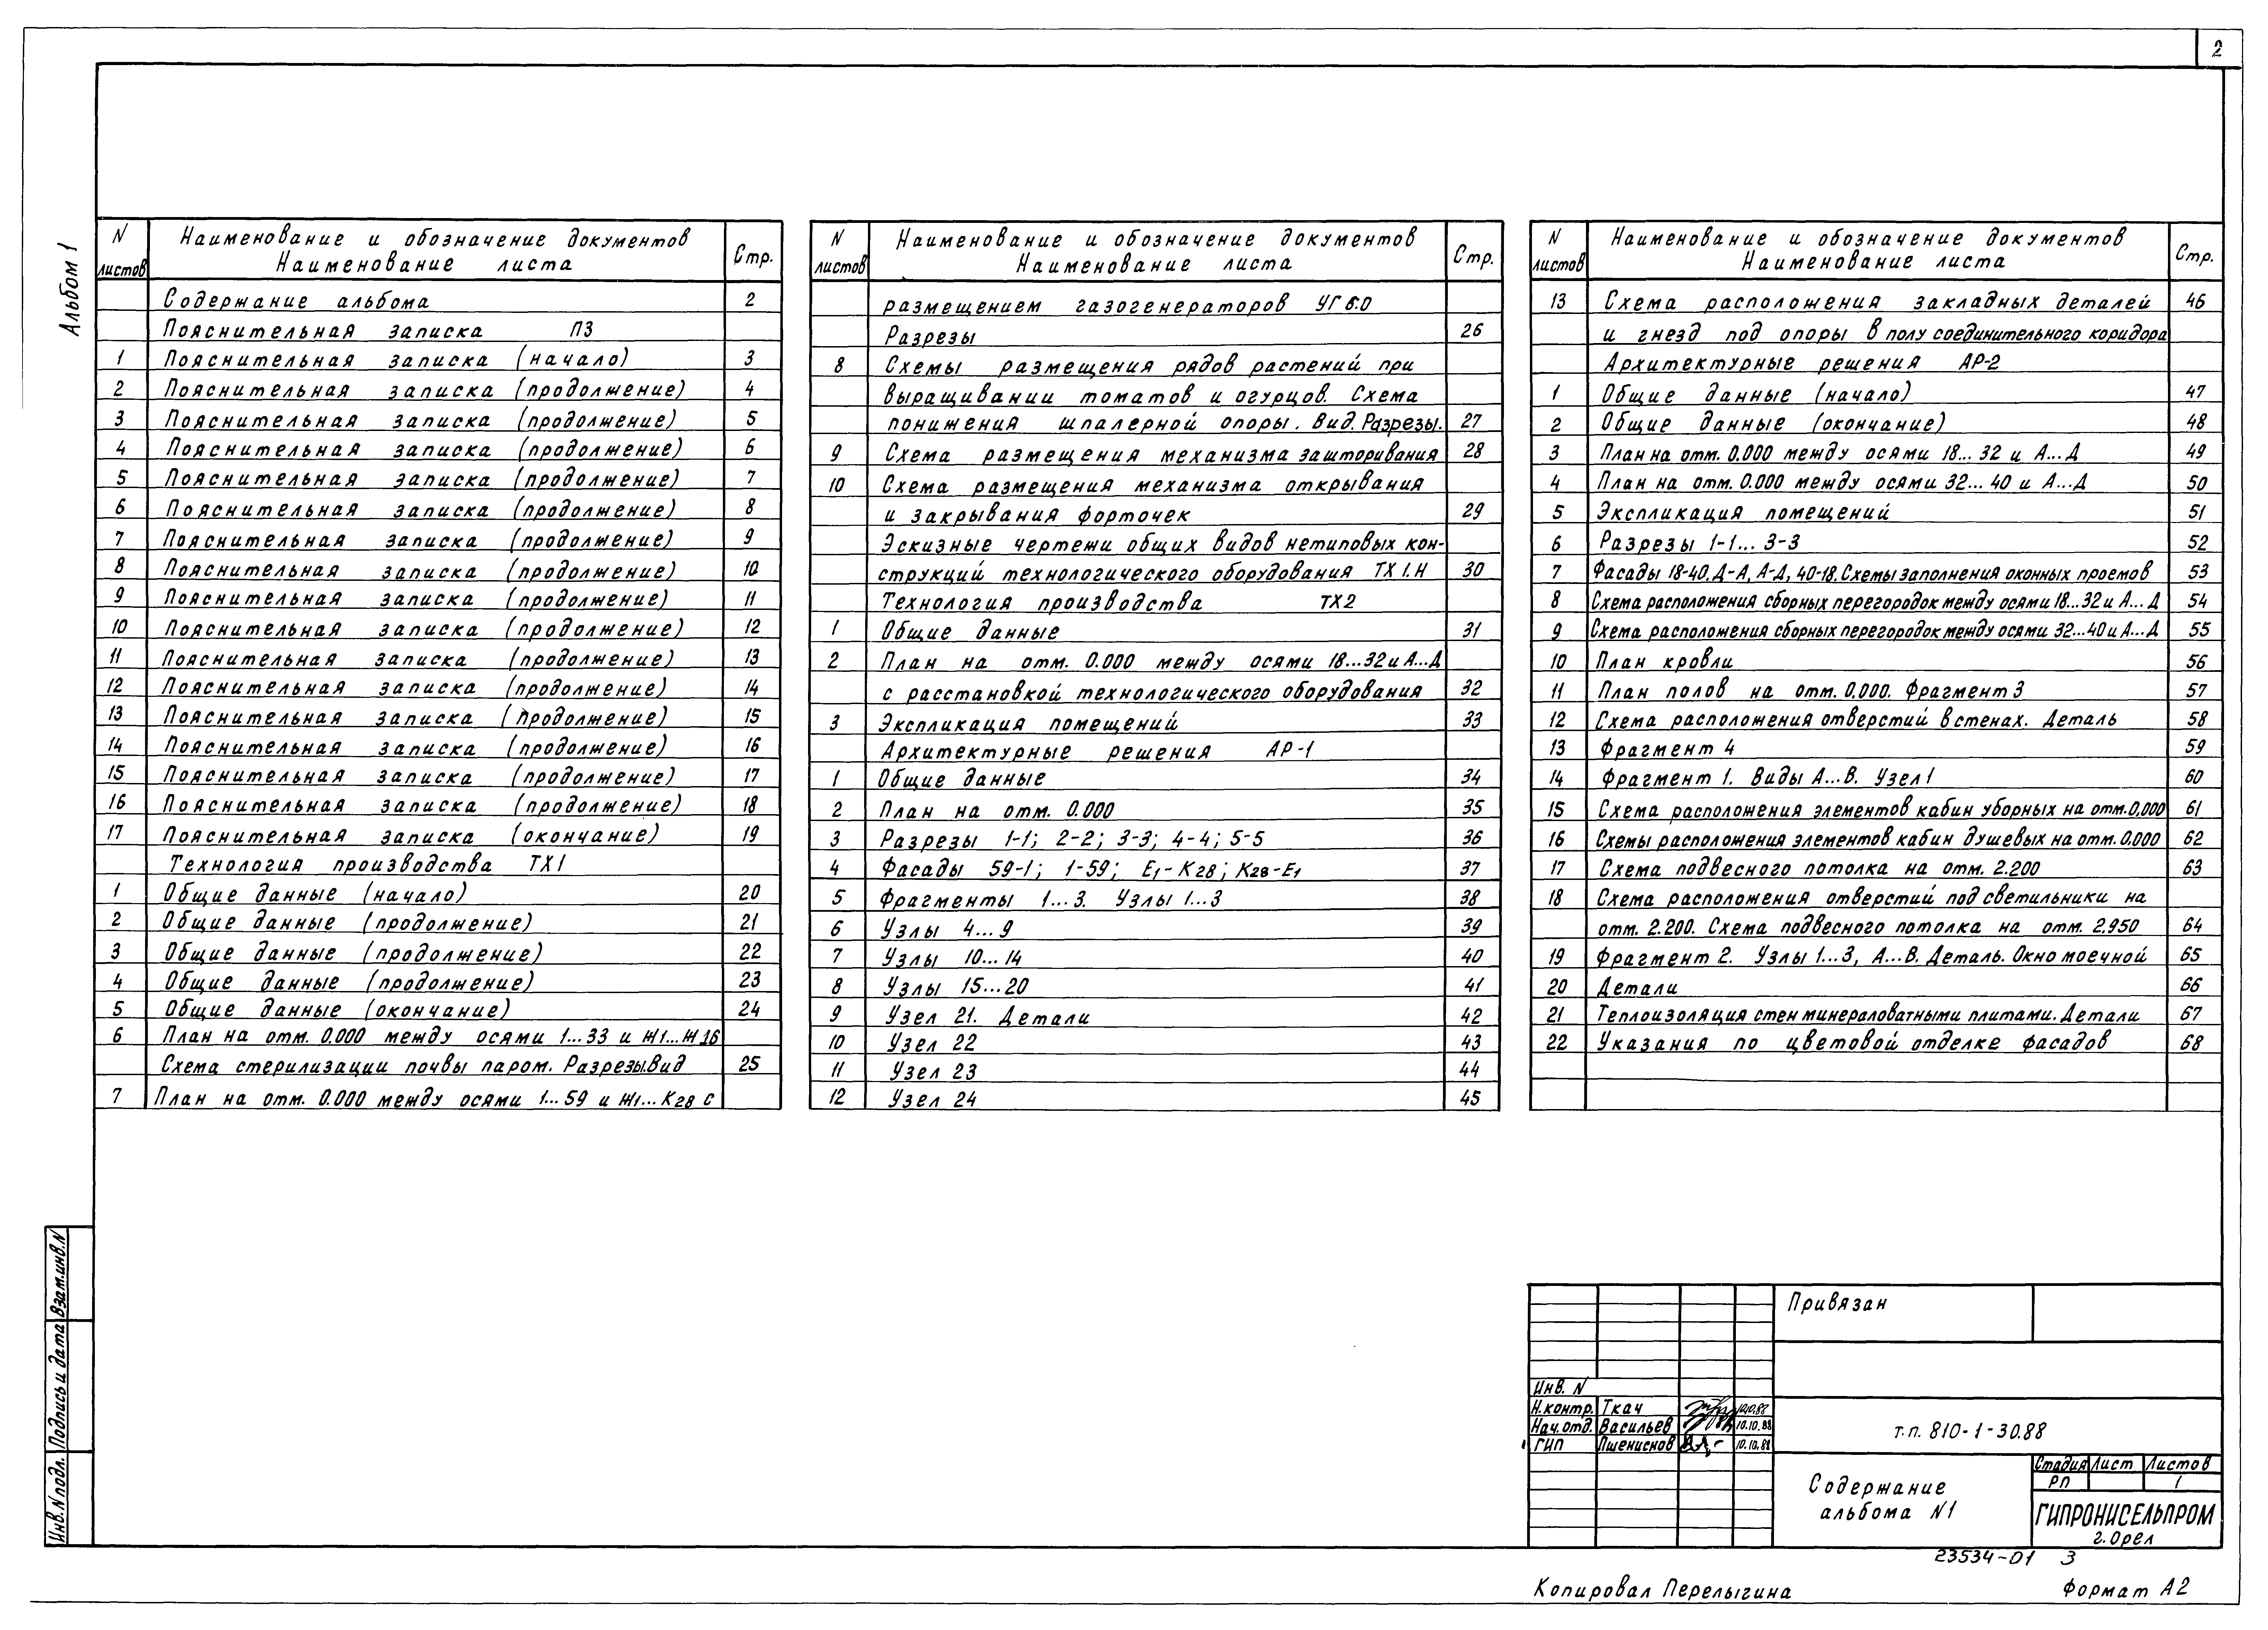 2
Альбом 1
N листов Наименование и обозначение документов Наименование листа Стр.
Содержание альбома 2
Пояснительная записка ПЗ
1 Пояснительная записка (начало) 3
2 Пояснительная записка (продолжение) 4
3 Пояснительная записка (продолжение) 5
4 Пояснительная записка (продолжение) 6
5 Пояснительная записка (продолжение) 7
6 Пояснительная записка (продолжение) 8
7 Пояснительная записка (продолжение) 9
8 Пояснительная записка (продолжение) 10
9 Пояснительная записка (продолжение) 11
10 Пояснительная записка (продолжение) 12
11 Пояснительная записка (продолжение) 13
12 Пояснительная записка (продолжение) 14
13 Пояснительная записка (продолжение) 15
14 Пояснительная записка (продолжение) 16
15 Пояснительная записка (продолжение) 17
16 Пояснительная записка (продолжение) 18
17 Пояснительная записка (окончание) 19
Технология производства ТХ1
1 Общие данные (начало) 20
2 Общие данные (продолжение) 21
3 Общие данные (продолжение) 22
4 Общие данные (продолжение) 23
5 Общие данные (окончание) 24
6 План на отм. 0.000 между осями 1...33 и Ж1...Ж16
Схема стерилизации почвы паром. Разрезы.Вид 25
7 План на отм. 0.000 между осями 1...59 и Ж1...К28 с
N листов Наименование и обозначение документов Наименование листа Стр.
размещением газогенераторов УГ 6.0
Разрезы 26
8 Схемы размещения рядов растений при
выращивании томатов и огурцов. Схема
понижения шпалерной опоры. Вид. Разрезы. 27
9 Схема размещения механизма зашторивания 28
10 Схема размещения механизма открывания
и закрывания форточек 29
Эскизные чертежи общих видов нетиповых кон-
струкций технологического оборудования ТХ 1.Н 30
Технология производства ТХ2
1 Общие данные 31
2 План на отм. 0.000 между осями 18...32 и А...Д
с расстановкой технологического оборудования 32
3 Экспликация помещений 33
Архитектурные решения АР-1
1 Общие данные 34
2 План на отм. 0.000 35
3 Разрезы 1-1; 2-2; 3-3; 4-4; 5-5 36
4 Фасады 59-1; 1-59; Е1-К28; К28-Е1 37
5 Фрагменты 1...3. Узлы 1...3 38
6 Узлы 4...9 39
7 Узлы 10...14 40
8 Узлы 15...20 41
9 Узел 21. Детали 42
10 Узел 22 43
11 Узел 23 44
12 Узел 24 45
N листов Наименование и обозначение документов Наименование листа Стр.
13 Схема расположения закладных деталей 46
и гнезд под опоры в полу соединительного коридора
Архитектурные решения АР-2
1 Общие данные (начало) 47
2 Общие данные (окончание) 48
3 План на отм. 0.000 между осями 18...32 и А...Д 49
4 План на отм. 0.000 между осями 32...40 и А...Д 50
5 Экспликация помещений 51
6 Разрезы 1-1...3-3 52
7 Фасады 18-40, Д-А, А-Д, 40-18. Схемы заполнения оконных проемов 53
8 Схема расположения сборных перегородок между осями 18...32 и А...Д 54
9 Схема расположения сборных перегородок между осями 32...40 и А...Д 55
10 План кровли 56
11 План полов на отм. 0.000. Фрагмент 3 57
12 Схема расположения отверстий в стенах. Деталь 58
13 Фрагмент 4 59
14 Фрагмент 1. Виды А...В. Узел 1 60
15 Схема расположения элементов кабин уборных на отм. 0.000 61
16 Схемы расположения элементов кабин душевых на отм. 0.000 62
17 Схема подвесного потолка на отм. 2.200 63
18 Схема расположения отверстий под светильники на
отм. 2.200. Схема подвесного потолка на отм. 2.950 64
19 Фрагмент 2. Узлы 1...3, А...В. Деталь. Окно моечной 65
20 Детали 66
21 Теплоизоляция стен минераловатными плитами. Детали 67
22 Указания по цветовой отделке фасадов 68
Инв.N подл. Подпись и дата Взам.инв.N
Привязан
Инв. N
Н.контр. Ткач 10.10.88
Нач.отд. Васильев 10.10.88
ГИП Пшениснов 10.10.88
т.п. 810-1-30.88
Содержание альбома N1
Стадия Лист Листов
РП 1
ГИПРОНИСЕЛЬПРОМ
г. Орел
23534-01 3
Копировал Перелыгина Формат А2